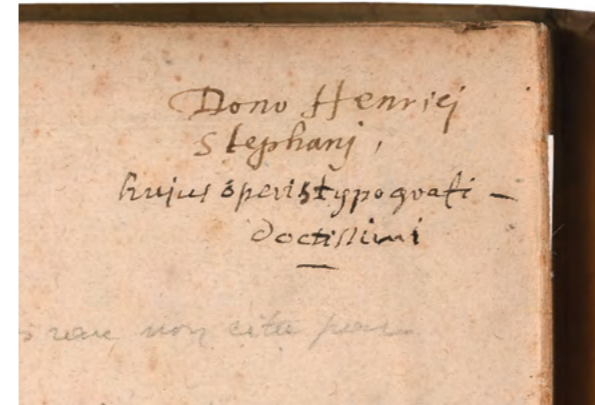 Dono Henricj
Stephanj,
hujus operis typografi –
doctissimi
non cité par